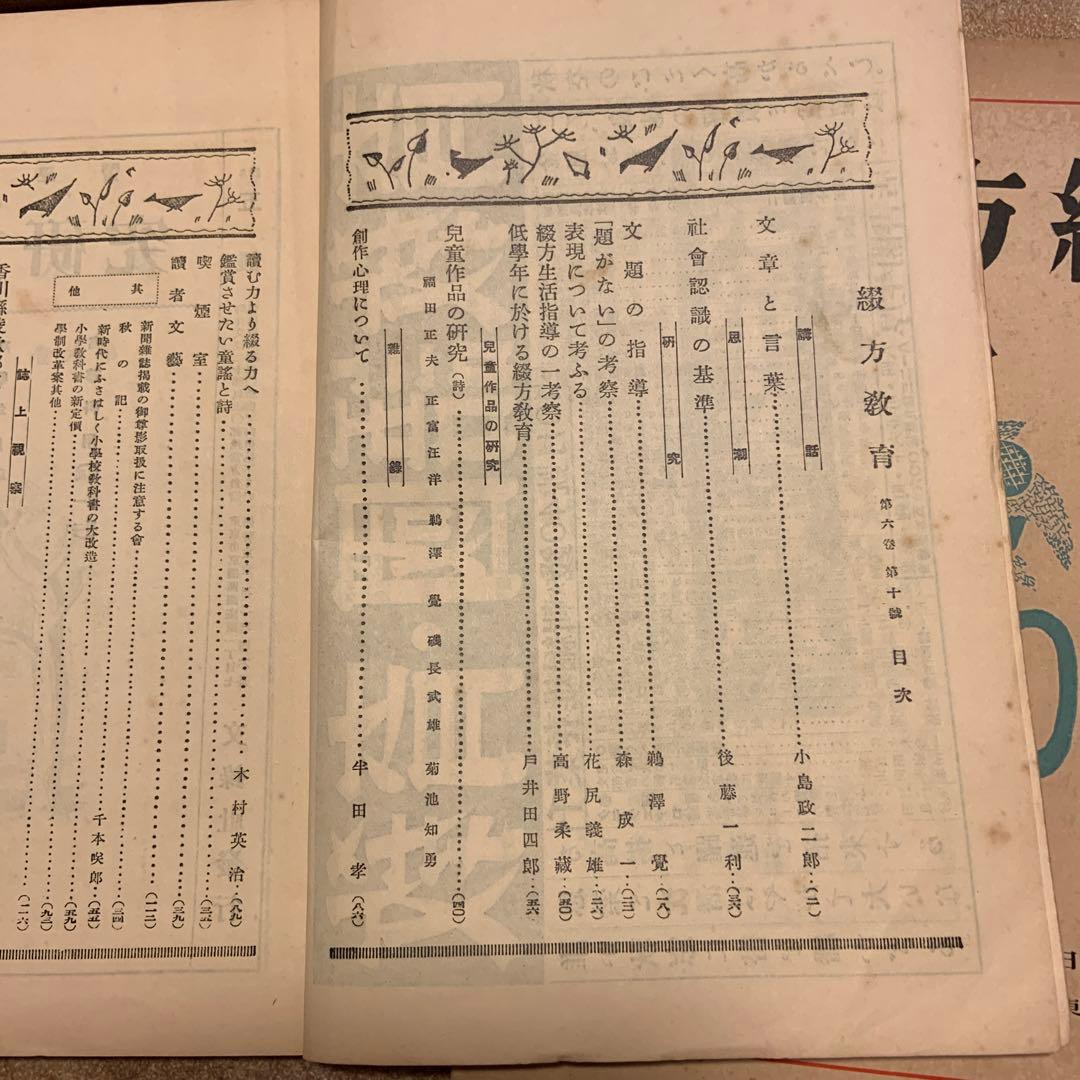 綴方教育 第六卷第十號 目次
講話
文章と言葉…小島政二郎…(二)
思潮
社會認識の基準…後藤一利…(三六)
研究
文題の指導…鵜澤覺…(一八)
「題がない」の考察…森成一…(二二)
表現について考ふる…花尻義雄…(二六)
綴方生活指導の一考察…高野柔藏…(五〇)
低學年に於ける綴方教育…戸井田四郎…(五六)
兒童作品の研究
兒童作品の研究(詩)…(四〇)
福田正夫 正富汪洋 鵜澤覺 磯長武雄 菊池知勇
雜錄
創作心理について…半田孝…(八六)
讀む力より綴る力へ…木村英治…(八九)
鑑賞させたい童謠と詩
喫煙室…(三五)
讀者文藝…(三九)
其他
新聞雜誌掲載の御尊影取扱に注意する會…(一二)
秋の記…(三四)
新時代にふさはしく小學校教科書の大改造…千本咲郎…(五五)
小學教科書の新定價…(五九)
學制改革案其他…(九三)
誌上視察
(一一六)